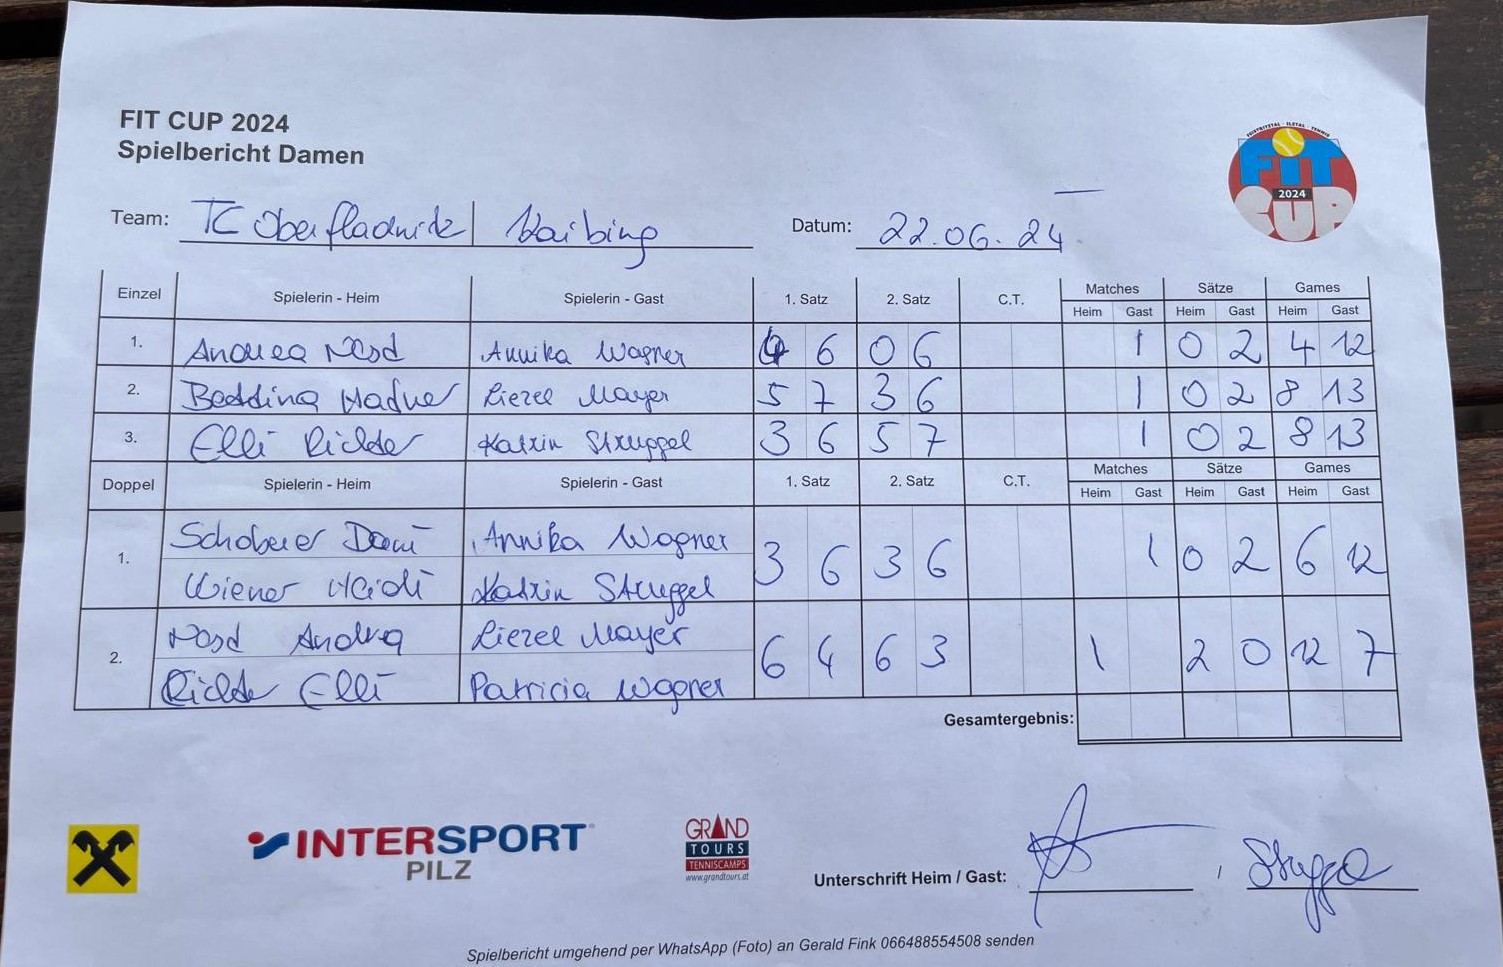 FIT CUP 2024
Spielbericht Damen
FEISTRITZTAL - ILZTAL - TENNIS
FIT
2024
CUP
Team: TC Oberfladnitz | Kaibing Datum: 22.06.24
Einzel Spielerin - Heim Spielerin - Gast 1. Satz 2. Satz C.T. Matches Sätze Games
Heim Gast Heim Gast Heim Gast
1. Annika Wagner 4 6 0 6 1 0 2 4 12
2. Liezel Mayer 5 7 3 6 1 0 2 8 13
3. Elli Katrin Struggel 3 6 5 7 1 0 2 8 13
Doppel Spielerin - Heim Spielerin - Gast 1. Satz 2. Satz C.T. Matches Sätze Games
Heim Gast Heim Gast Heim Gast
1. Schoberer Dani Annika Wagner 3 6 3 6 1 0 2 6 12
Wiener Heidi Katrin Struggel
2. Andrea Liezel Mayer 6 4 6 3 1 2 0 12 7
Elli Patricia Wagner
Gesamtergebnis:
INTERSPORT
PILZ
GRAND
TOURS
TENNISCAMPS
www.grandtours.at
Unterschrift Heim / Gast:
Spielbericht umgehend per WhatsApp (Foto) an Gerald Fink 066488554508 senden